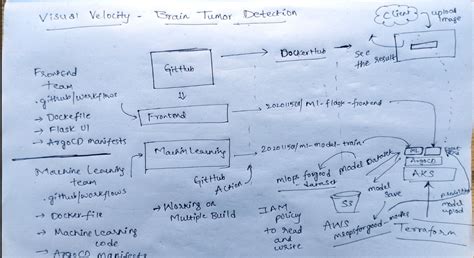 Visual Velocity - Brain Tumor Detection
Client
upload image
GitHub
DockerHub
see the result
Frontend team
.github/workflow
→ Dockerfile
→ Flask UI
→ ArgoCD manifests
Frontend
/ ml-flask-frontend
Machine Learning team
.github/workflows
→ Dockerfile
→ Machine Learning code
→ ArgoCD manifests
Machin Learning
/ml-model-train
GitHub Action
→ Working on Multiple Build
IAM policy to read and write
mlops forgood dataset
model Dataset
model save
S3
AWS
ML
ArgoCD
AKS
model upload
Terraform